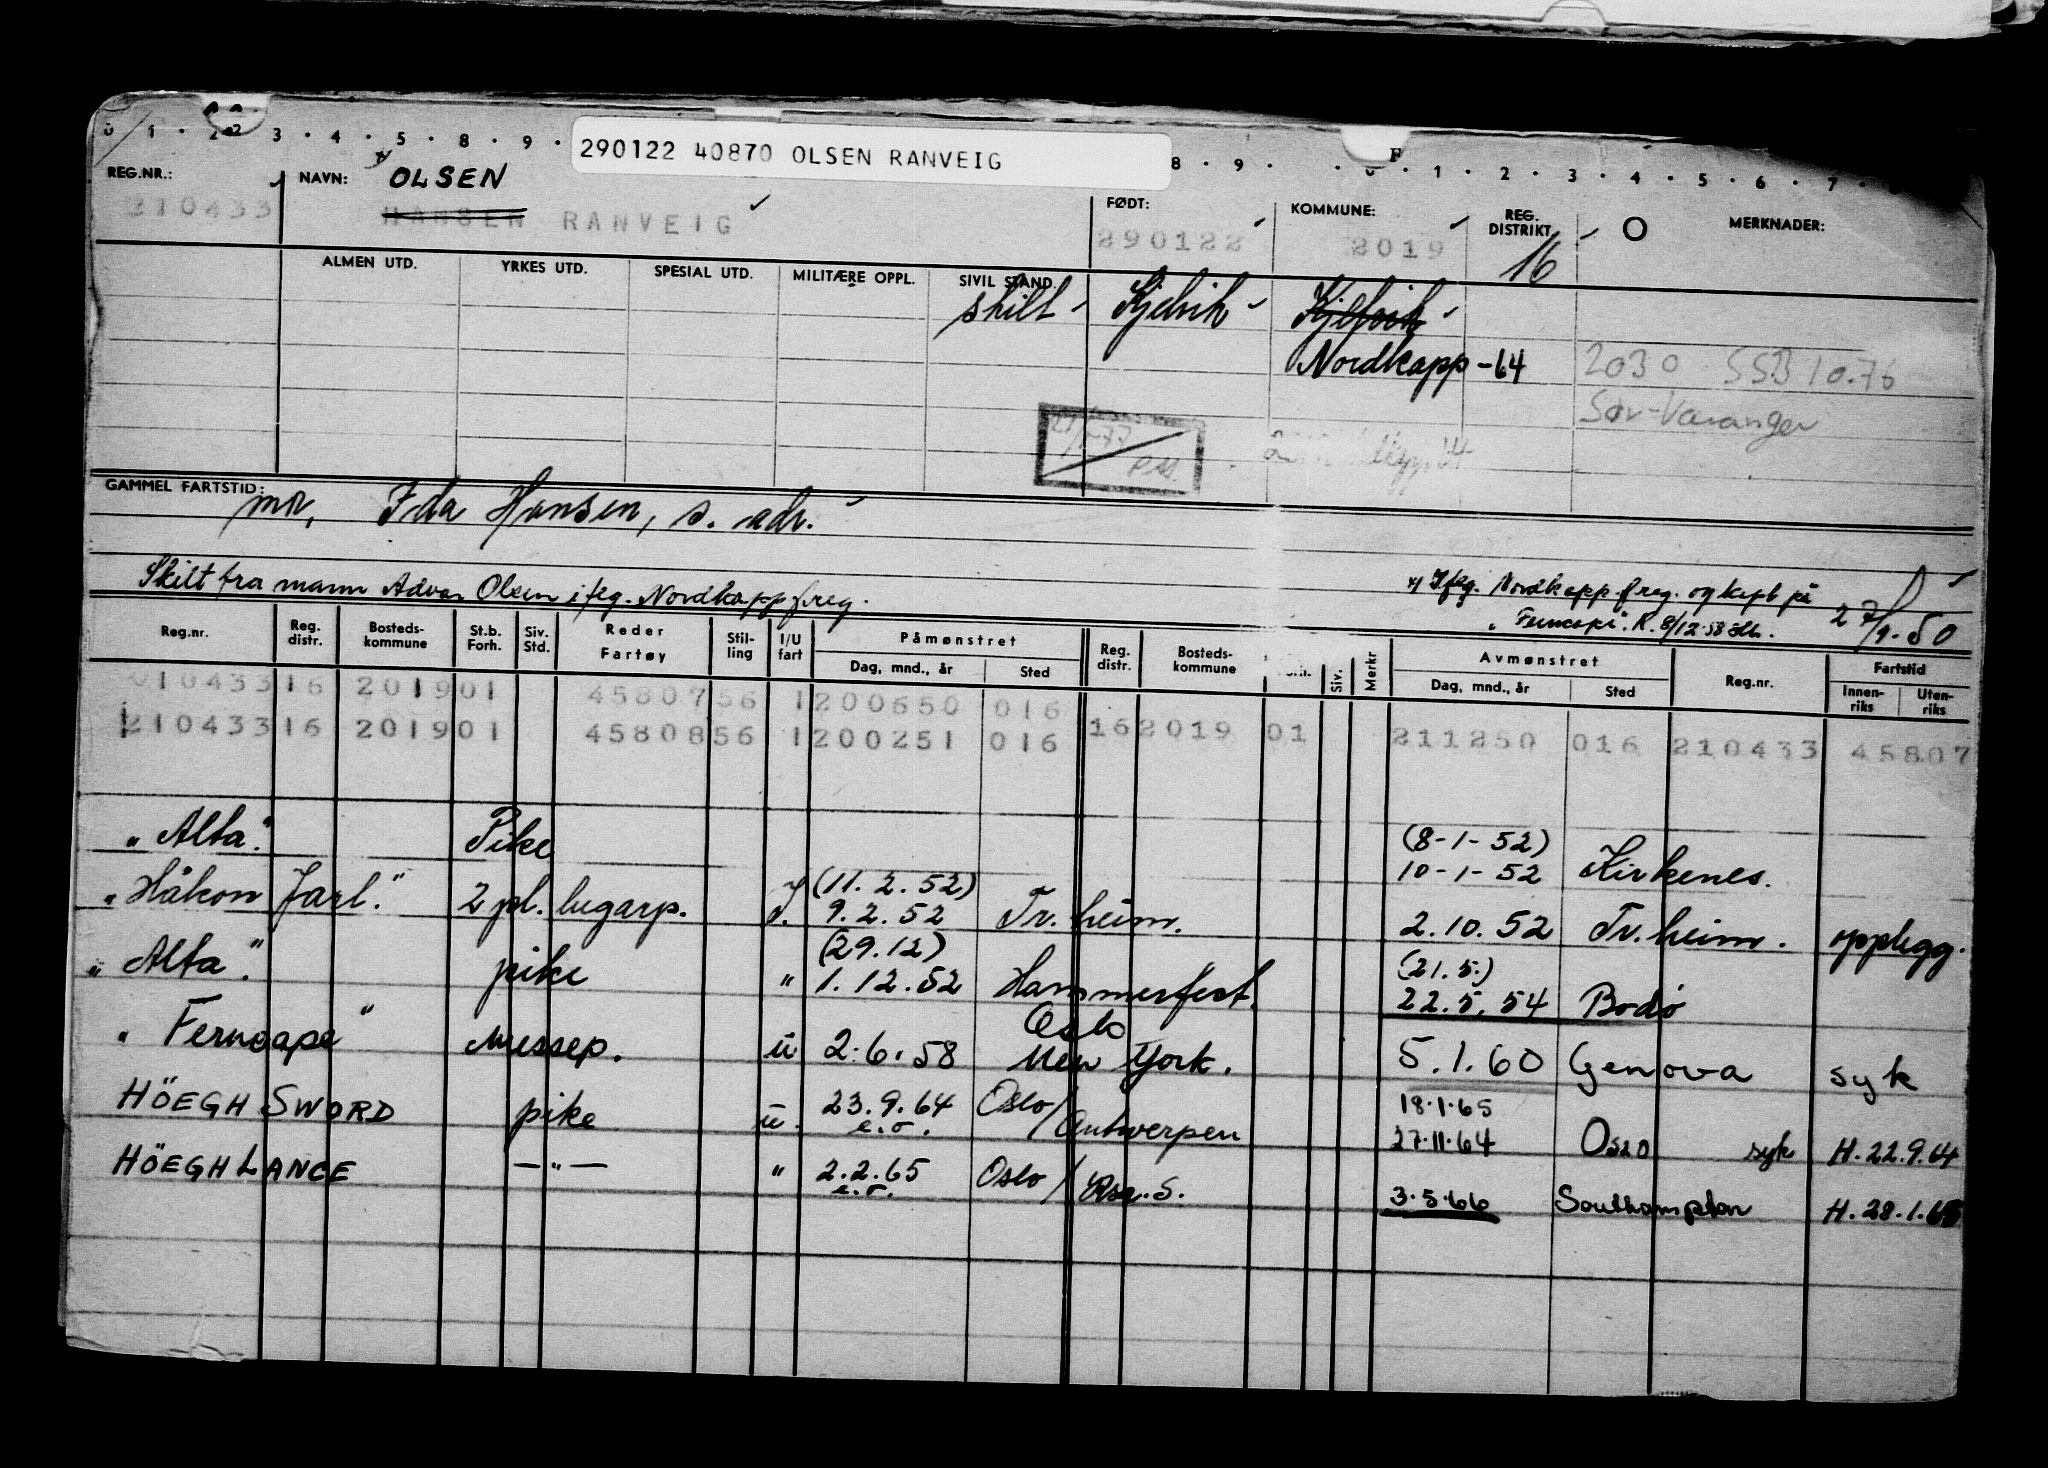 0 1 2 3 4 5 8 9 8 9 F 0 1 2 3 4 5 6 7
290122 40870 OLSEN RANVEIG
REG.NR.: NAVN: OLSEN FØDT: KOMMUNE: REG. DISTRIKT O MERKNADER:
210433 HANSEN RANVEIG 290122 2019 16
ALMEN UTD. YRKES UTD. SPESIAL UTD. MILITÆRE OPPL. SIVIL STAND.
skilt Kjelvik Kjelvik
Nordkapp -64 2030 SSB 10.76
Sør-Varanger
GAMMEL FARTSTID: mor, Ida Hansen, s. adr.
Skilt fra mann Advar Olsen ifлg. Nordkapp f.reg.
x) Ifлg. Nordkapp f.reg. og kapt på
"Ferncape". R. 8/12-58 27/9-50
Reg.nr. Reg. distr. Bosteds- kommune St.b. Forh. Siv. Std. Reder Fartøy Stil- ling I/U fart Påmønstret Dag, mnd., år Sted Reg. distr. Bosteds- kommune Siv. Merkr Avmønstret Dag, mnd., år Sted Reg.nr. Fartstid Innen- riks Uten- riks
210433 16 2019 01 45807 56 1 200650 016
210433 16 2019 01 45808 56 1 200251 016 16 2019 01 211250 016 210433 45807
"Alta". Pike (8-1-52)
10-1-52 Kirkenes.
"Håkon Jarl." 2 pl. lugarp. I. (11.2.52)
9.2.52 Tr.heim. 2.10.52 Tr.heim. opplegg.
"Alta". pike " (29.12)
1.12.52 Hammerfest. (21.5.)
22.5.54 Bodø
"Ferncape" messep. u 2.6.58 Oslo
New York. 5.1.60 Genova syk
HÖEGH SWORD pike u. 23.9.64 e.o. Oslo/Antwerpen 18.1.65
27.11.64 Oslo syk H. 22.9.64
HÖEGH LANCE —"— " 2.2.65 e.o. Oslo/ 3.5.66 Southampton H. 28.1.65